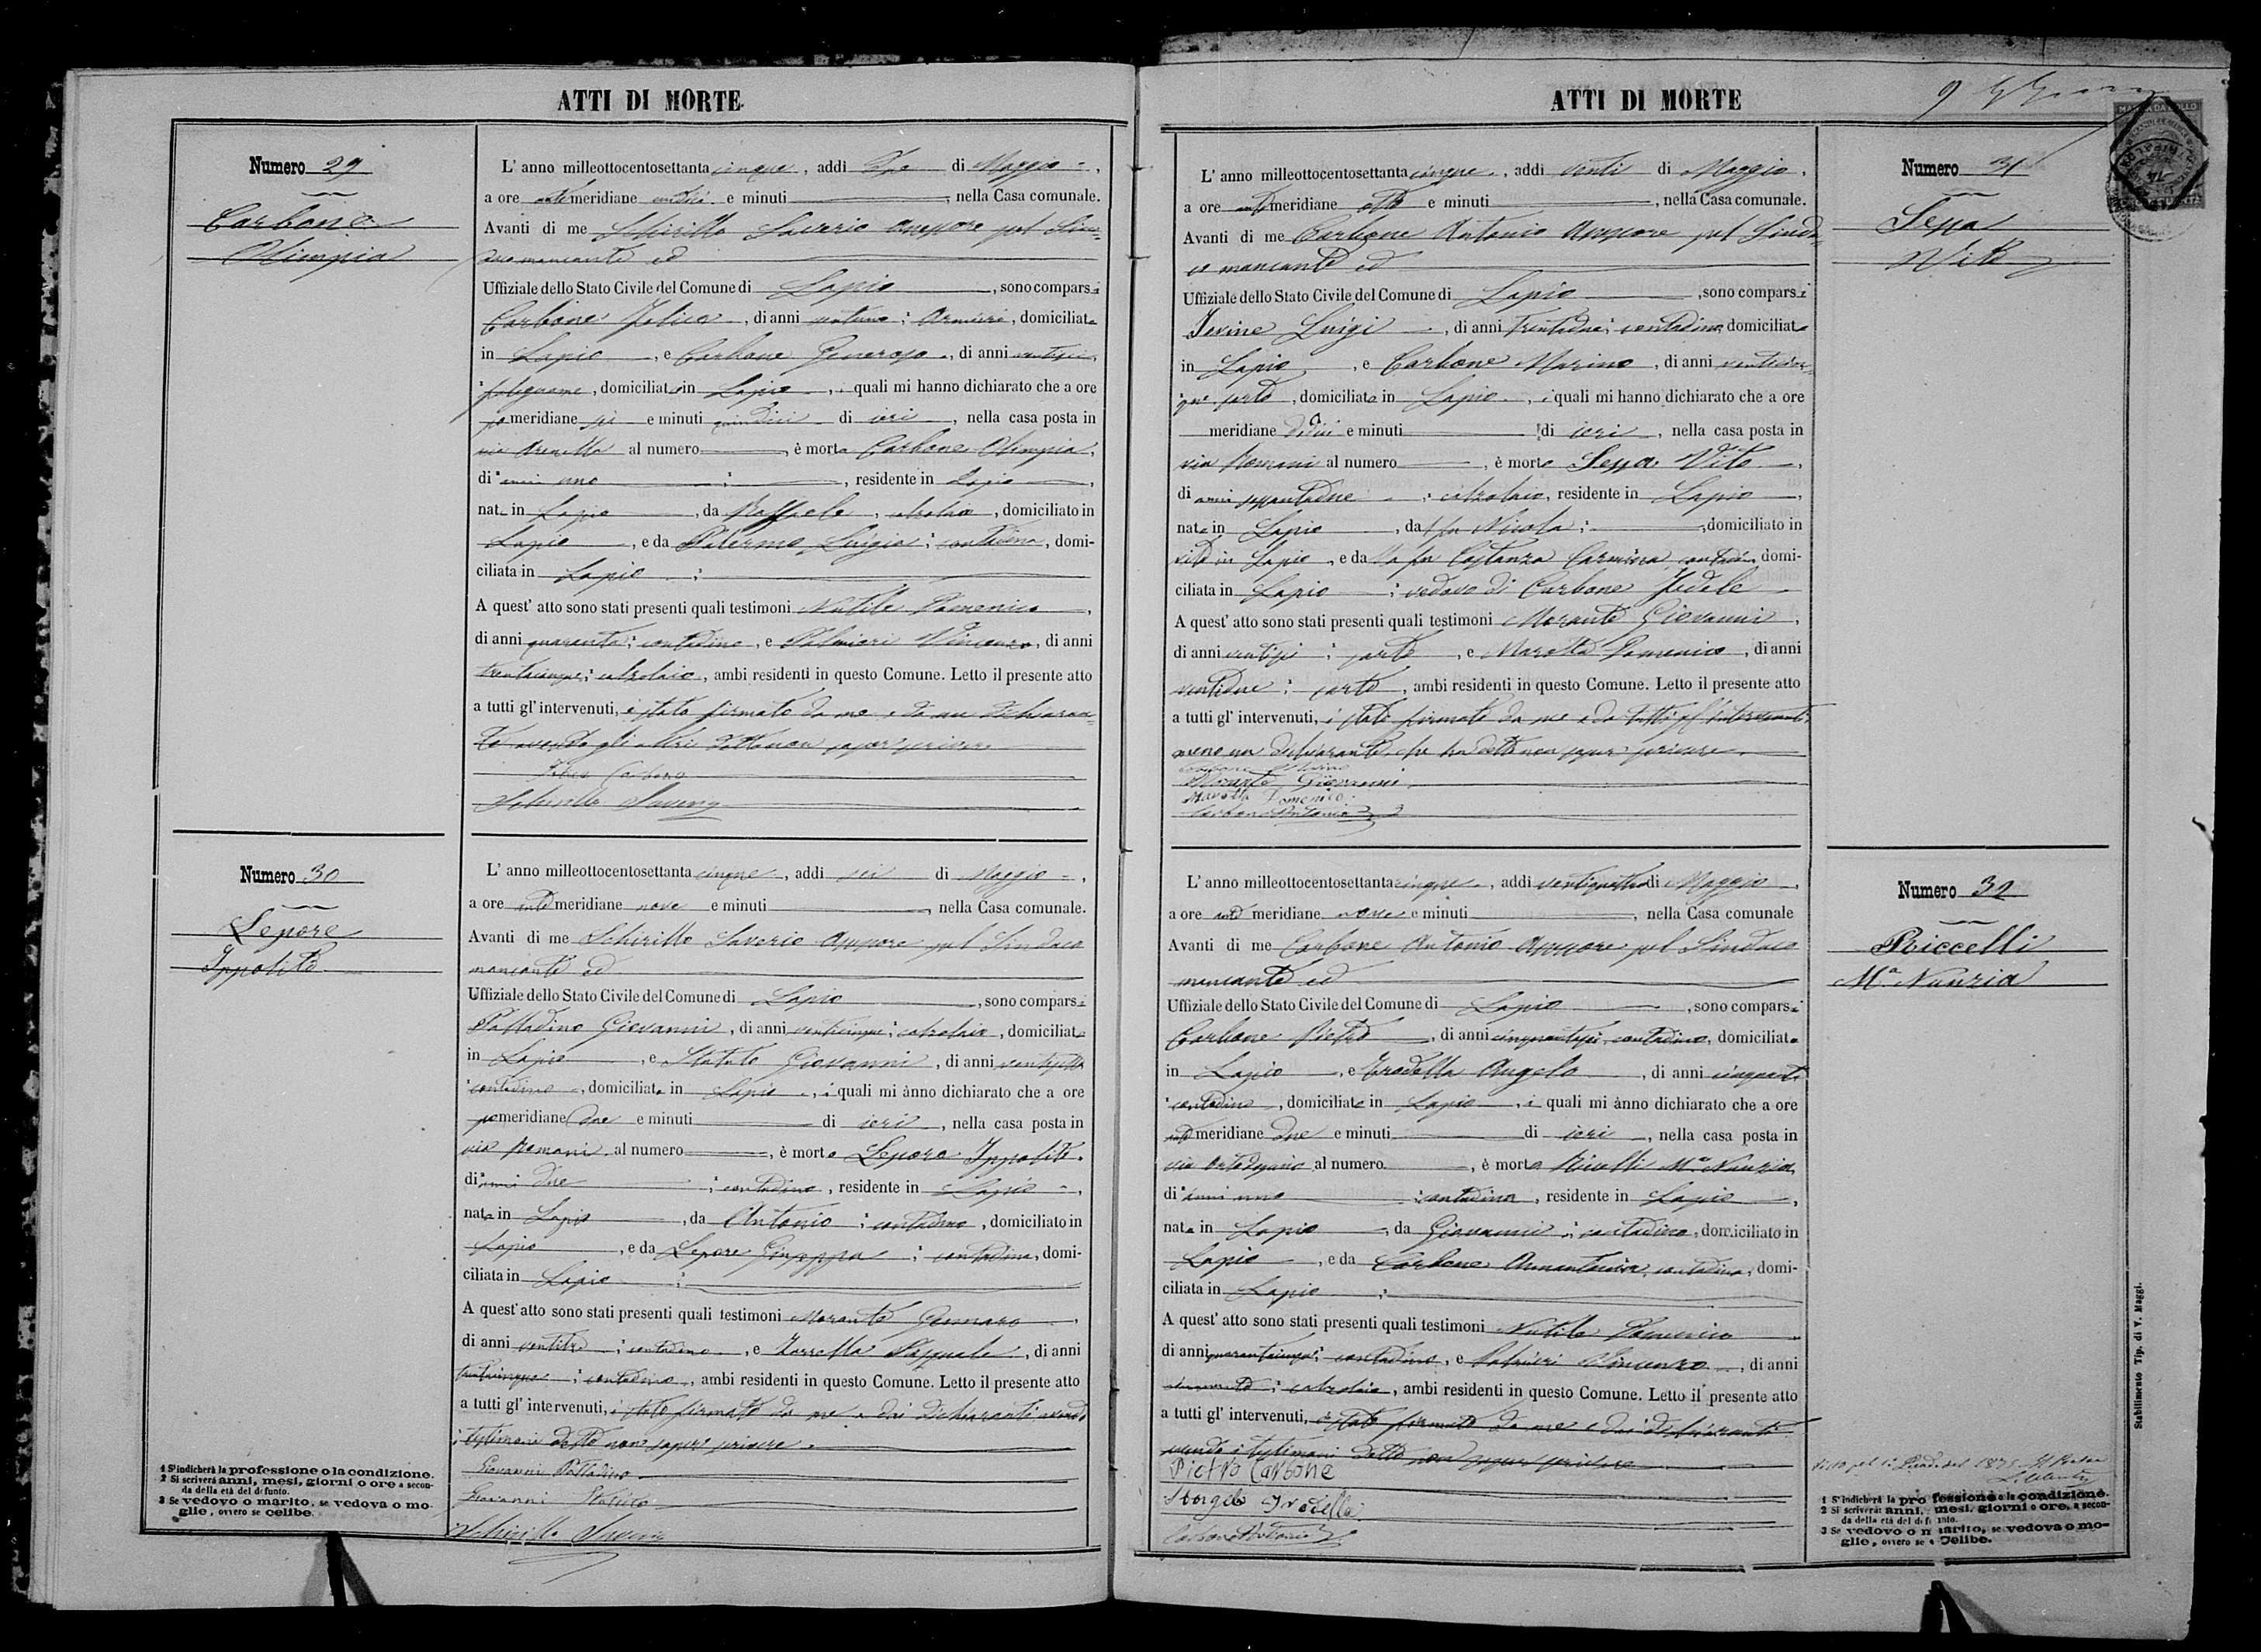 ATTI DI MORTE
Numero 29
Carbone
Olimpia
L' anno milleottocentosettanta cinque, addì tre di Maggio,
a ore antimeridiane undici e minuti , nella Casa comunale.
Avanti di me Schirillo Saverio Assessore pel Sin-
daco mancante ed
Uffiziale dello Stato Civile del Comune di Lapio, sono comparsi
Carbone Felice, di anni ventuno; domiciliato
in Lapio, e Carbone Generoso, di anni ventisei
falegname, domiciliato in Lapio, i quali mi hanno dichiarato che a ore
pomeridiane sei e minuti quindici di ieri, nella casa posta in
via Arenella al numero , è morta Carbone Olimpia,
di anni uno , residente in Lapio,
nata in Lapio, da Raffaele, domiciliato in
Lapio, e da Palermo Luigia; contadina, domi-
ciliata in Lapio;
A quest' atto sono stati presenti quali testimoni Nutile Domenico,
di anni quaranta; contadino, e Palmieri Vincenzo, di anni
trentacinque; calzolaio, ambi residenti in questo Comune. Letto il presente atto
a tutti gl' intervenuti, è stato firmato da me e da un dichiaran-
te avendo gli altri detto non saper scrivere
Felice Carbone
Schirillo Saverio
Numero 30
Lepore
Ippolito
L' anno milleottocentosettanta cinque, addì sei di Maggio,
a ore antimeridiane nove e minuti , nella Casa comunale.
Avanti di me Schirillo Saverio Assessore pel Sindaco
mancante ed
Uffiziale dello Stato Civile del Comune di Lapio, sono comparsi
Palladino Giovanni, di anni venticinque; calzolaio, domiciliato
in Lapio, e Statuto Giovanni, di anni ventisette
contadino, domiciliato in Lapio, i quali mi ànno dichiarato che a ore
pomeridiane due e minuti di ieri, nella casa posta in
via Romani al numero , è morto Lepore Ippolito
di anni due; contadino, residente in Lapio,
nato in Lapio, da Antonio; contadino, domiciliato in
Lapio, e da Lepore Giuseppa; contadina, domi-
ciliata in Lapio;
A quest' atto sono stati presenti quali testimoni Morante Gennaro
di anni ventitre; contadino, e Zarrella Pasquale, di anni
trentacinque; contadino, ambi residenti in questo Comune. Letto il presente atto
a tutti gl' intervenuti, è stato firmato da me e dai dichiaranti avendo
i testimoni detto non saper scrivere.
Giovanni Palladino
Giovanni Statuto
Schirillo Saverio
1 S'indicherà la professione o la condizione.
2 Si scriverà anni, mesi, giorni o ore a secon-
da della età del defunto.
3 Se vedovo o marito, se vedova o mo-
glie, ovvero se celibe.
ATTI DI MORTE
9
Numero 31
Sessa
Vito
L' anno milleottocentosettanta cinque, addì venti di Maggio,
a ore antimeridiane otto e minuti , nella Casa comunale.
Avanti di me Carbone Antonio Assessore pel Sinda-
co mancante ed
Uffiziale dello Stato Civile del Comune di Lapio, sono comparsi
Iovine Luigi, di anni trentadue; contadino, domiciliato
in Lapio, e Carbone Marino, di anni venticin-
que sarto, domiciliato in Lapio, i quali mi hanno dichiarato che a ore
meridiane dodici e minuti di ieri, nella casa posta in
via Romani al numero , è morto Sessa Vito,
di anni sessantadue; calzolaio, residente in Lapio,
nato in Lapio, da fu Nicola; domiciliato in
vita in Lapio, e da la fu Costanza Carmina, contadina, domi-
ciliata in Lapio; vedovo di Carbone Fedele
A quest' atto sono stati presenti quali testimoni Morante Giovanni,
di anni ventisei; sarto, e Marotta Domenico, di anni
ventidue; sarto, ambi residenti in questo Comune. Letto il presente atto
a tutti gl' intervenuti, è stato firmato da me e da tutti gl' intervenuti
meno un dichiarante che ha detto non saper scrivere
Carbone Marino
Morante Giovanni
Marotta Domenico
Carbone Antonio
Numero 32
Riccelli
Mª Nunzia
L' anno milleottocentosettanta cinque, addì ventiquattro di Maggio,
a ore anti meridiane nove e minuti , nella Casa comunale
Avanti di me Carbone Antonio Assessore pel Sindaco
mancante ed
Uffiziale dello Stato Civile del Comune di Lapio, sono comparsi
Carbone Pietro, di anni cinquantasei, contadino, domiciliato
in Lapio, e Trodella Angelo, di anni cinquanta
contadino, domiciliato in Lapio, i quali mi ànno dichiarato che a ore
antimeridiane due e minuti di ieri, nella casa posta in
via al numero , è morta Riccelli Mª Nunzia,
di anni uno; contadina, residente in Lapio,
nata in Lapio, da Giovanni; contadino, domiciliato in
Lapio, e da Carbone Amantonia, contadina, domi-
ciliata in Lapio;
A quest' atto sono stati presenti quali testimoni Nutile Domenico
di anni quarantacinque; contadino, e Palmieri Vincenzo, di anni
calzolaio, ambi residenti in questo Comune. Letto il presente atto
a tutti gl' intervenuti, è stato firmato da me e dai dichiaranti
avendo i testimoni detto non saper scrivere
Pietro Carbone
Angelo Trodella
Carbone Antonio
1 S'indicherà la professione o la condizione.
2 Si scriverà anni, mesi, giorni o ore, a secon-
da della età del defunto.
3 Se vedovo o marito, se vedova o mo-
glie, ovvero se Celibe.
Stabilimento Tip. di V. Maggi.